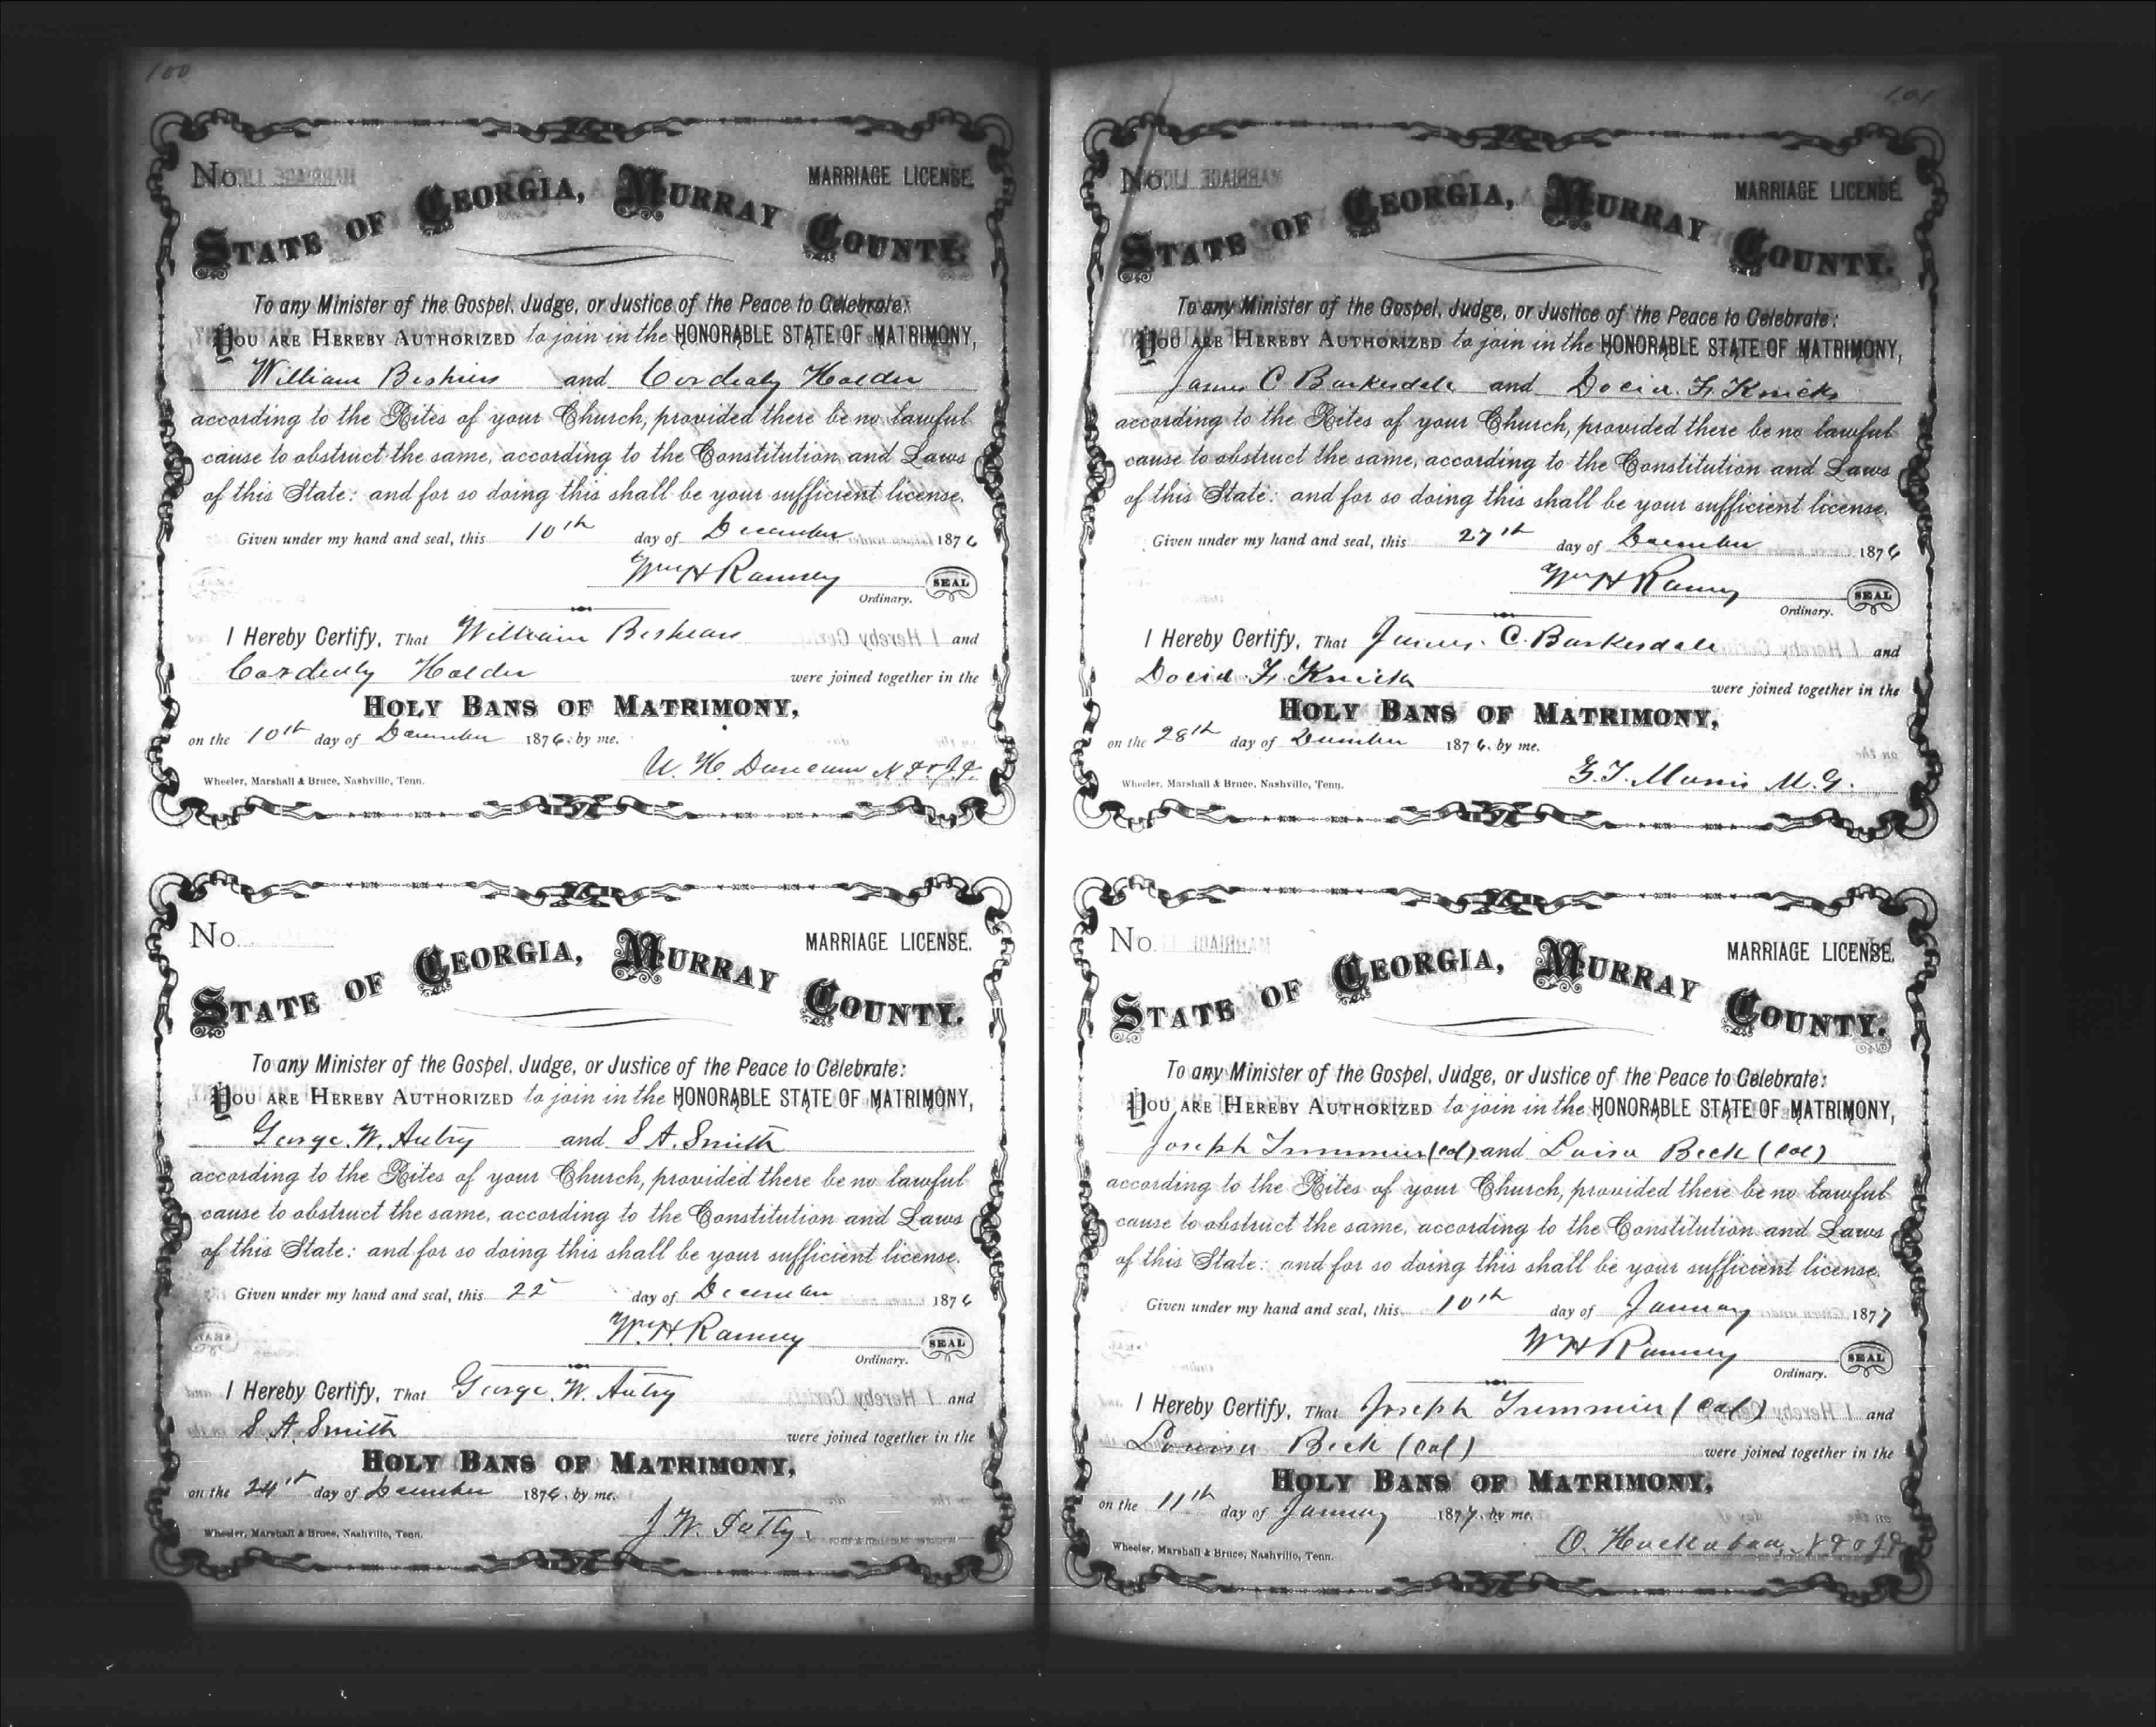 100
No.
MARRIAGE LICENSE.
STATE OF GEORGIA, MURRAY COUNTY.
To any Minister of the Gospel, Judge, or Justice of the Peace to Celebrate:
YOU ARE HEREBY AUTHORIZED to join in the HONORABLE STATE OF MATRIMONY,
William and Cordealy Holder
according to the Rites of your Church, provided there be no lawful
cause to obstruct the same, according to the Constitution and Laws
of this State: and for so doing this shall be your sufficient license.
Given under my hand and seal, this 10th day of December 1876
Wm H Ramsey SEAL
Ordinary.
I Hereby Certify, That William and
Cordealy Holder were joined together in the
HOLY BANS OF MATRIMONY,
on the 10th day of December 1876, by me.
W. H. Duncan
Wheeler, Marshall & Bruce, Nashville, Tenn.
No.
MARRIAGE LICENSE.
STATE OF GEORGIA, MURRAY COUNTY.
To any Minister of the Gospel, Judge, or Justice of the Peace to Celebrate:
YOU ARE HEREBY AUTHORIZED to join in the HONORABLE STATE OF MATRIMONY,
George W. Autry and S A. Smith
according to the Rites of your Church, provided there be no lawful
cause to obstruct the same, according to the Constitution and Laws
of this State: and for so doing this shall be your sufficient license.
Given under my hand and seal, this 22 day of December 1876
Wm H Ramsey SEAL
Ordinary.
I Hereby Certify, That George W. Autry and
S A. Smith were joined together in the
HOLY BANS OF MATRIMONY,
on the 24th day of December 1876, by me.
J W.
Wheeler, Marshall & Bruce, Nashville, Tenn.
101
No.
MARRIAGE LICENSE.
STATE OF GEORGIA, MURRAY COUNTY.
To any Minister of the Gospel, Judge, or Justice of the Peace to Celebrate:
YOU ARE HEREBY AUTHORIZED to join in the HONORABLE STATE OF MATRIMONY,
James C Barkesdale and Docia F.
according to the Rites of your Church, provided there be no lawful
cause to obstruct the same, according to the Constitution and Laws
of this State: and for so doing this shall be your sufficient license.
Given under my hand and seal, this 27th day of December 1876
Wm H Ramsey SEAL
Ordinary.
I Hereby Certify, That James C. Barkesdale and
Docia F. were joined together in the
HOLY BANS OF MATRIMONY,
on the 28th day of December 1876, by me.
Morris M.G.
Wheeler, Marshall & Bruce, Nashville, Tenn.
No.
MARRIAGE LICENSE.
STATE OF GEORGIA, MURRAY COUNTY.
To any Minister of the Gospel, Judge, or Justice of the Peace to Celebrate:
YOU ARE HEREBY AUTHORIZED to join in the HONORABLE STATE OF MATRIMONY,
Joseph Trimmier (Col) and Luisa Beck (Col)
according to the Rites of your Church, provided there be no lawful
cause to obstruct the same, according to the Constitution and Laws
of this State: and for so doing this shall be your sufficient license.
Given under my hand and seal, this 10th day of January 1877
Wm H Ramsey SEAL
Ordinary.
I Hereby Certify, That Joseph Trimmier (Col) and
Louisa Beck (Col) were joined together in the
HOLY BANS OF MATRIMONY,
on the 11th day of January 1877, by me.
O.
Wheeler, Marshall & Bruce, Nashville, Tenn.